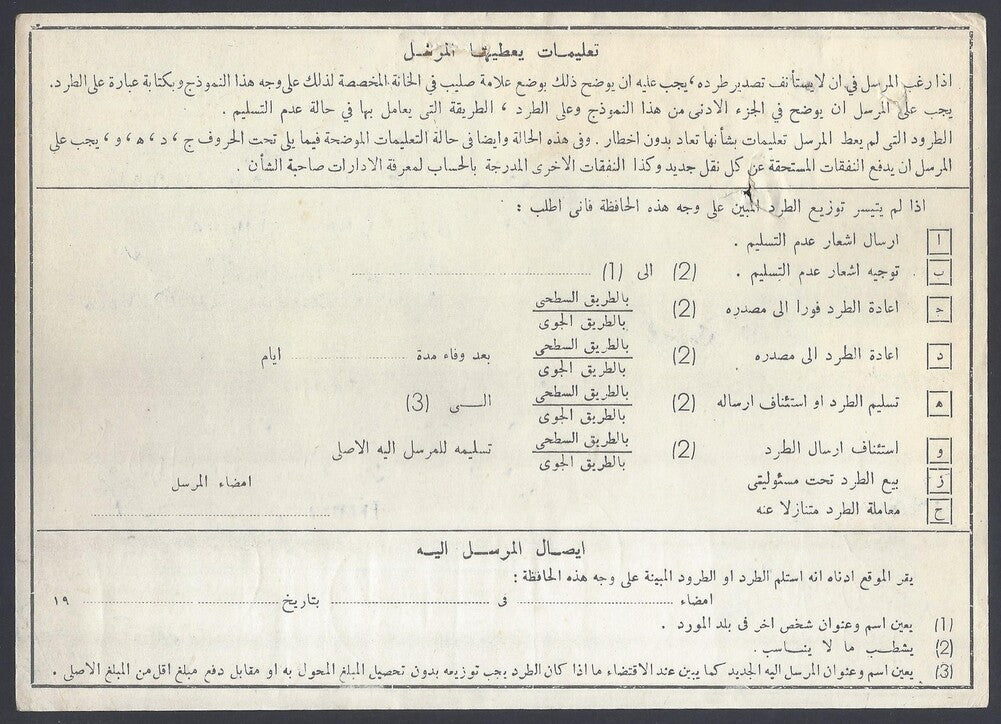 تعليمات يعطيها المرسل
اذا رغب المرسل في ان لا يستأنف تصدير طرده، يجب عليه ان يوضح ذلك بوضع علامة صليب في الخانة المخصصة لذلك على وجه هذا النموذج وبكتابة عبارة على الطرد.
يجب على المرسل ان يوضح في الجزء الادنى من هذا النموذج وعلى الطرد ، الطريقة التى يعامل بها في حالة عدم التسليم .
الطرود التى لم يعط المرسل تعليمات بشأنها تعاد بدون اخطار . وفى هذه الحالة وايضا فى حالة التعليمات الموضحة فيما يلى تحت الحروف ج ، د ، ه ، و ، يجب على
المرسل ان يدفع النفقات المستحقة عن كل نقل جديد وكذا النفقات الاخرى المدرجة بالحساب لمعرفة الادارات صاحبة الشأن .
اذا لم يتيسر توزيع الطرد المبين على وجه هذه الحافظة فانى اطلب :
ا ارسال اشعار عدم التسليم .
ب توجيه اشعار عدم التسليم . (2) الى (1)
ج اعادة الطرد فورا الى مصدره (2) بالطريق السطحى
بالطريق الجوى
د اعادة الطرد الى مصدره (2) بالطريق السطحى
بالطريق الجوى
بعد وفاء مدة ايام
ه تسليم الطرد او استئناف ارساله (2) بالطريق السطحى
بالطريق الجوى
الـــى (3)
و استئناف ارسال الطرد (2) بالطريق السطحى
بالطريق الجوى
تسليمه للمرسل اليه الاصلى
ز بيع الطرد تحت مسئوليتى
امضاء المرسل
ح معاملة الطرد متنازلا عنه
ايصال المرسل اليه
يقر الموقع ادناه انه استلم الطرد او الطرود المبينة على وجه هذه الحافظة :
امضاء فى بتاريخ ١٩
(1) يعين اسم وعنوان شخص اخر فى بلد المورد .
(2) يشطب ما لا يناسب .
(3) يعين اسم وعنوان المرسل اليه الجديد كما يبين عند الاقتضاء ما اذا كان الطرد يجب توزيعه بدون تحصيل المبلغ المحول به او مقابل دفع مبلغ اقل من المبلغ الاصلى .